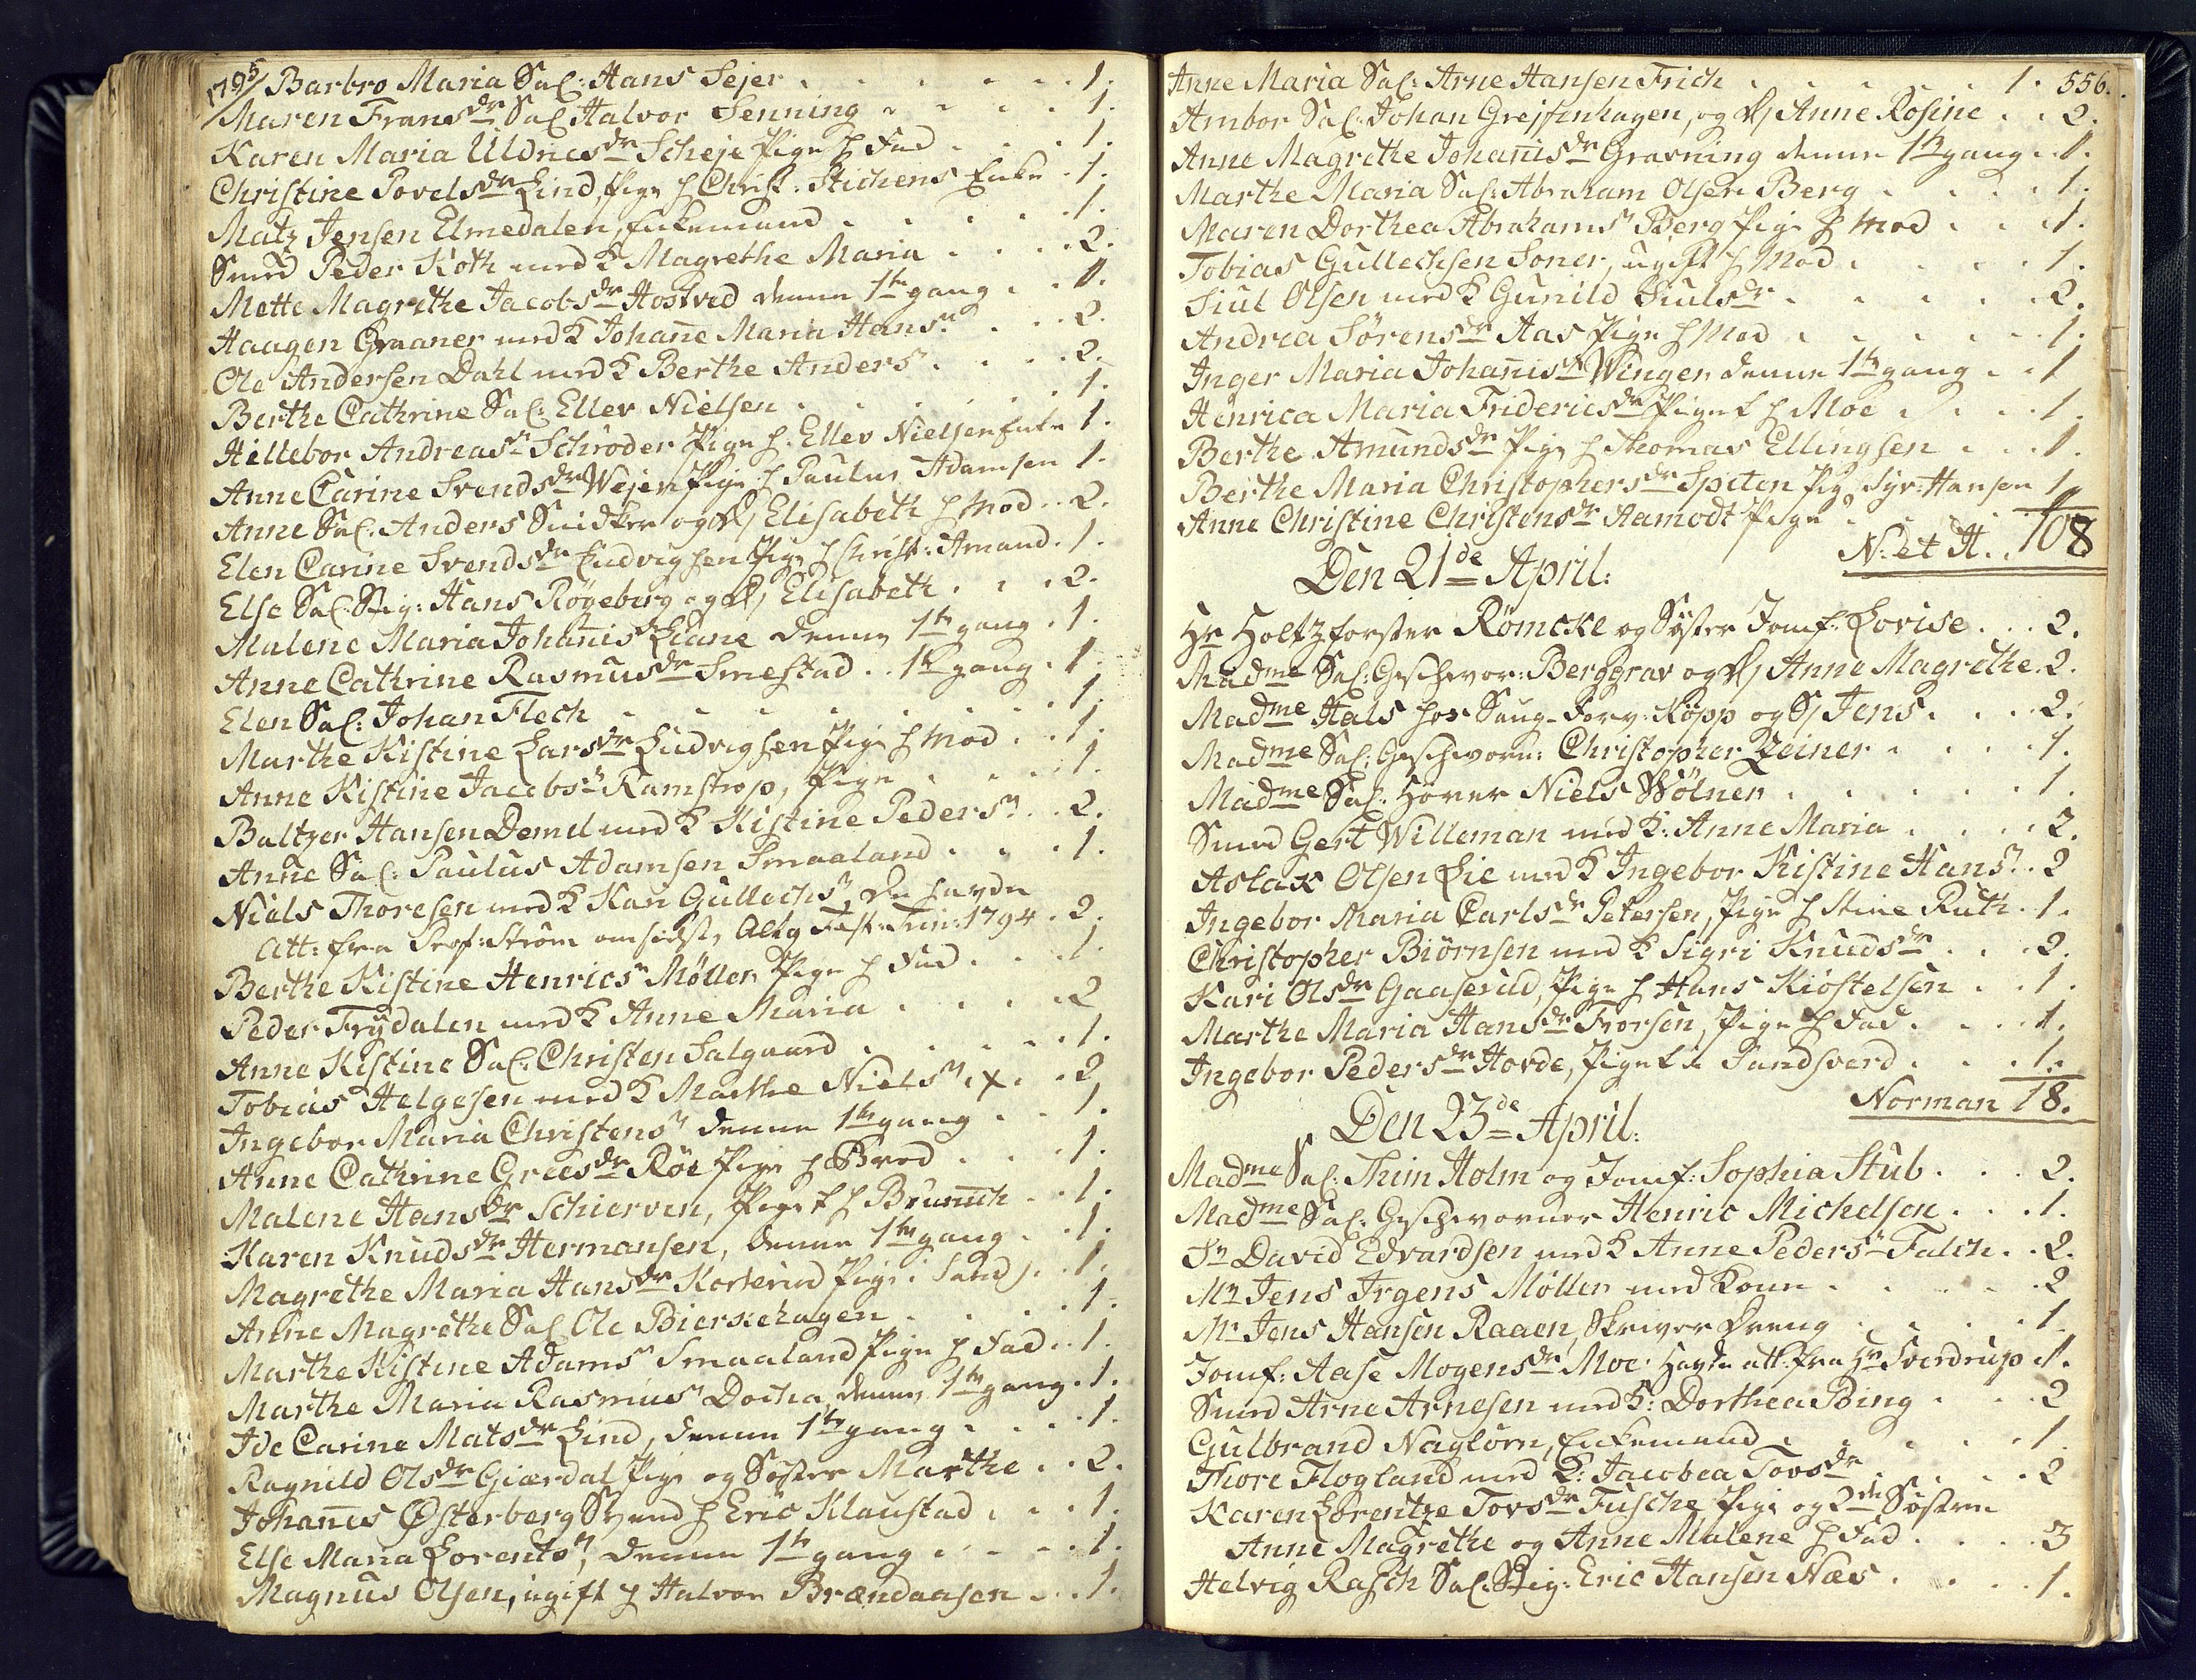 1795/ Barbro Maria Sal: Hans Sejer . . . . . . 1.
Maren Fransdr Sal Halvor Senning . . . . 1.
Karen Maria Uldricsdr Scheje Pige h Fad . . . 1.
Christine Povelsdr Lind, Pige h Christ: Stichens Enke . 1.
Matz Jensen Elmedalen, Enkemand . . . . . 1.
Smed Peder Koth med K Magrethe Maria . . . . 2.
Mette Magrethe Jacobsdr Hostved denne 1te gang . . 1.
Haagen Graaner med K Johañe Maria Hansr . . . 2.
Ole Andersen Dahl med K Berthe Andersr . . . . 2.
Berthe Cathrine Sal: Ellev Nielsen . . . . . . 1.
Hellebor Andreasr Schrøder Pige h. Ellev Nielsen Enke 1.
Anne Carine Svendsdr Wejer Pige h Paulus Adamsen 1.
Anne Sal: Anders Snidker og D/ Elisabeth h Mod . 2.
Elen Carine Svendsdr Ludvigsen Pige h Christ: Amand . 1.
Else Sal: Stig: Hans Rögeberg og D/ Elisabeth . . . 2.
Malene Maria Johañisdr Liane denne 1te gang . 1.
Anne Cathrine Rasmusdr Smestad . . 1te gang . 1.
Elen Sal: Johan Flech . . . . . . . 1.
Marthe Kistine Larsdr Ludvigsen Pige h Mod . . . 1.
Anne Kistine Jacobsr Ramstrop, Pige . . . . 1.
Baltzer Hansen Demel med K Kistine Pedersr . . 2.
Anne Sal: Paulus Adamsen Smaaland . . . . 1.
Niels Thoresen med K Kari Gullechsr, de havde
Att: fra Prof: Strøm om sidste Alterg Fest: Trin: 1794 . 2.
Berthe Kistine Henricsr Møller Pige h Fad . . . 1.
Peder Frydalen med K Anne Maria . . . . 2
Anne Kistine Sal: Christen Salgaard . . . . . 1.
Tobias Helgesen med K Marthe Nielsr . x . . 2
Ingebor Maria Christensr denne 1te gang . . . 1.
Anne Cathrine Greesdr Röe Pige h Brod . . . 1.
Malene Hansdr Schierven, Piget h Bruñich . . 1.
Karen Knudsdr Hermansen, denne 1te gang . . 1.
Magrethe Maria Hansdr Korterud Pige i Sand) . . 1.
Anne Magrethe Sal Ole Bierkehagen . . . . 1.
Marthe Kistine Adamsr Smaaland Pige h Fad . . 1.
Marthe Maria Rasmusr Docka denne 1te gang . 1.
Ide Carine Matsdr Lind, denne 1te gang . . . 1.
Ragnild Olsdr Giærdal Pige og Søster Marthe . . 2.
Johañes Østerberg Svend h Eric Klaustad . . . 1.
Else Maria Lorentsr, denne 1te gang . . . . 1.
Magnus Olsen, ugift h Halvor Brændaasen . . . 1.
556.
Anne Maria Sal: Arne Hansen Frich . . . . . 1.
Ambor Sal: Johan Grejfenhagen, og D/ Anne Rosine . . 2.
Anne Magrethe Johañisdr Gravning denne 1te gang . . 1.
Marthe Maria Sal: Abraham Olsen Berg . . . . 1.
Maren Dorthea Abrahamsr Berg Pige h Mod . . . 1.
Tobias Gullechsen Soner, ugift h Mod . . . . 1.
Siul Olsen med K Gunild Siulsdr . . . . . 2.
Andrea Sørensdr Aas Pige h Mod . . . . . 1.
Inger Maria Johañisdr Winger denne 1te gang . . 1
Henrica Maria Fridericsdr Piget h Moe . . . . 1.
Berthe Amundsdr Pige h Thomas Ellingsen . . . 1.
Berthe Maria Christophersdr Speten Pige Syv: Hansen 1.
Anne Christine Christensdr Aamodt Pige . . . . 1.
N: et H. . 108
Den 21de April:
Hr Holtzforster Römcke og Syster Jomf: Lovise . . . 2.
Madme Sal: Geschwor: Berggrav og D/ Anne Magrethe . 2.
Madme Hals hos Saug-Forv: Köpp og S/ Jens . . . . 2.
Madme Sal: Geschworn: Christopher Zeiner . . . . 1.
Madme Sal: Hörer Niels Wölner . . . . . . 1.
Smed Gert Willeman med K: Anne Maria . . . . 2.
Aslax Olsen Lie med K Ingebor Kistine Hansr . . 2
Ingebor Maria Carlsdr Petersen, Pige h Stine Ruth . 1.
Christopher Biörnsen med K Sigri Knudsdr . . . 2.
Kari Olsdr Gaaserud, Pige h Hans Kiöstelsen . . 1.
Marthe Maria Hansdr Frorsen, Pige h Fad . . . . 1.
Ingebor Pedersdr Hovde, Piget i Sandsverd . . . 1.
Norman 18.
Den 23de April:
Madme Sal: Thim Holm og Jomf: Sophia Stub . . . 2.
Madme Sal: Geschworner Henric Michelsen . . . 1.
Sr David Edvardsen med K Anne Pedersr Falch . . 2.
Mr Jens Irgens Møller med Kone . . . . . 2
Mr Jens Hansen Raaen, Skriver Dreng . . . . 1.
Jomf: Aase Mogensdr Moe havde att: fra Hr Sverdrup . 1.
Smed Arne Arnesen med K: Dorthea Bing . . . 2
Gulbrand Naglörn, Enkemand . . . . . . 1.
Thore Flogland med K: Jacobea Tovsdr . . . . . 2
Karen Lorentze Tovsdr Fusche Pige og 2de Søstre
Anne Magrethe og Anne Malene h Fad . . . . 3
Helvig Rasch Sal: Stig: Eric Hansen Næs . . . . 1.